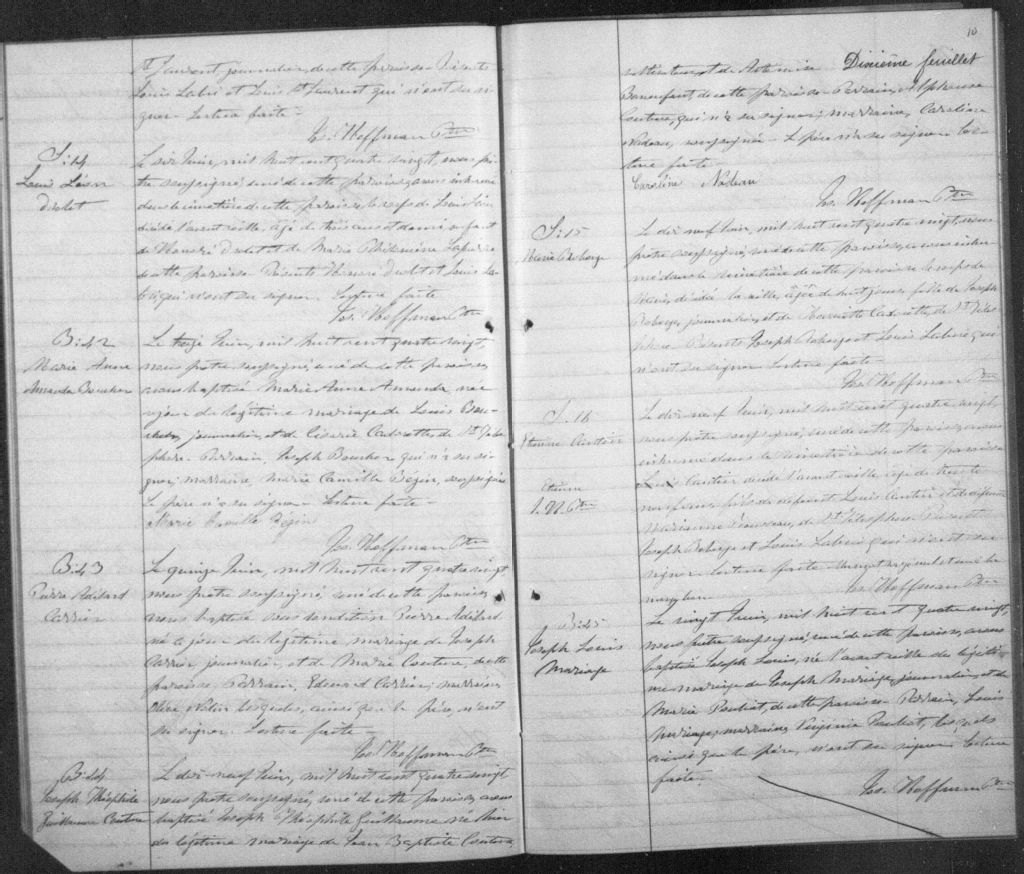 St Laurent, journalier, de cette paroisse. Présents
Louis Labri et Louis St Laurent qui n'ont su si-
gner. Lecture faite.
Jos. Hoffman Ptre
S:14
Louis Léon
Drolet
Le six Juin, mil huit cent quatre vingt, nous prê-
tre soussigné, curé de cette paroisse, avons inhumé
dans le cimetière de cette paroisse le corps de Louis Léon
décédé l'avant veille, âgé de trois ans et demi, enfant
de Honoré Drolet et de Marie Philomène
de cette paroisse. Présents Honoré Drolet et Louis La-
bri qui n'ont su signer. Lecture faite
Jos. Hoffman Ptre
B:42
Marie Anne
Amanda Boucher
Le treize Juin, mil huit cent quatre vingt,
nous prêtre soussigné, curé de cette paroisse,
avons baptisé Marie Anne Amanda, née
ce jour du légitime mariage de Louis Bou-
cher, journalier, et de Césarie Cadrotte, de St Téles-
phore. Parrain, Joseph Boucher qui n'a su si-
gner; marraine, Marie Camille Bégin, soussignée
Le père n'a su signer. Lecture faite.
Marie Camille Bégin
Jos. Hoffman Ptre
B:43
Pierre Adélard
Carrier
Le quinze Juin, mil huit cent quatre vingt,
nous prêtre soussigné, curé de cette paroisse,
avons baptisé sous condition Pierre Adélard
né ce jour du légitime mariage de Joseph
Carrier, journalier, et de Marie Couture, de cette
paroisse. Parrain, Edouard Carrier; marraine,
Olive lesquels, ainsi que le père, n'ont
su signer. Lecture faite.
Jos. Hoffman Ptre
B:44
Joseph Théophile
Guillaume Couture
Le dix-neuf Juin, mil huit cent quatre vingt
nous prêtre soussigné, curé de cette paroisse, avons
baptisé Joseph Théophile Guillaume né hier
du légitime mariage de Jean Baptiste Couture
10
Dixième feuillet
cultivateur, et de Artémise
Bonenfant, de cette paroisse. Parrain, Alphonse
Couture, qui n'a su signer; marraine, Caroline
Nadeau, soussignée. Le père n'a su signer. Lec-
ture faite.
Caroline Nadeau
Jos. Hoffman Ptre
S:15
Roberge
Le dix neuf Juin, mil huit cent quatre vingt, nous
prêtre soussigné, curé de cette paroisse, avons inhu-
mé dans le cimetière de cette paroisse le corps de
décédé la veille, âgée de huit jours, fille de Joseph
Roberge, journalier, et de Henriette Cadrotte, de St Téles-
phore. Présents Joseph Roberge et Louis Labrie, qui
n'ont su signer. Lecture faite.
Jos. Hoffman Ptre
S.16
Etienne Cantin
Etienne
J. H. Ptre
Le dix neuf Juin, mil huit cent quatre vingt,
nous prêtre soussigné, curé de cette paroisse, avons
inhumé dans le cimetière de cette paroisse
Louis Cantin décédé l'avant veille, âgé de trente
neuf ans, fils de défunt Louis Cantin et de défunte
Marianne de St Télesphore. Présents
Joseph Roberge et Louis Labrie qui n'ont su
signer. Lecture faite.
Jos. Hoffman Ptre
B:45
Joseph Louis
Mariage
Le vingt Juin, mil huit cent quatre vingt,
nous prêtre soussigné, curé de cette paroisse, avons
baptisé Joseph Louis, né l'avant veille du légiti-
me mariage de Joseph Mariage, journalier, et de
Marie Pouliot, de cette paroisse. Parrain, Louis
Mariage; marraine, Virginie Paulet, lesquels
ainsi que le père, n'ont su signer. Lecture
faite.
Jos. Hoffman Ptre